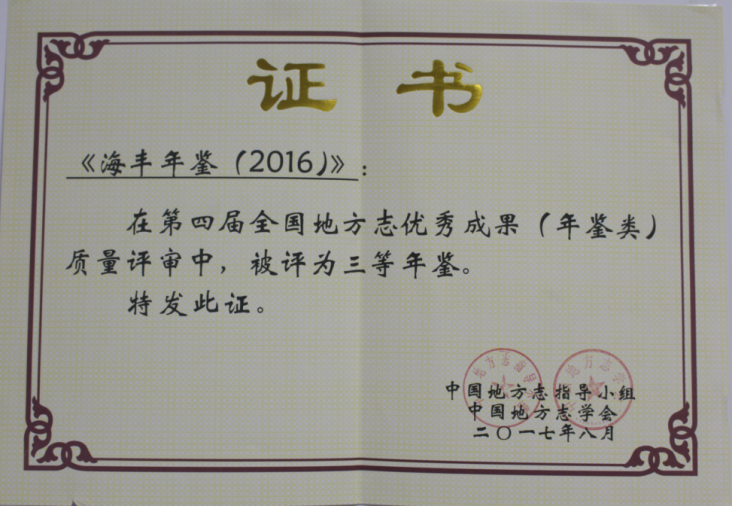 证书
《海丰年鉴(2016)》:
在第四届全国地方志优秀成果(年鉴类)
质量评审中,被评为三等年鉴。
特发此证。
中国地方志指导小组
中国地方志学会
二〇一七年八月